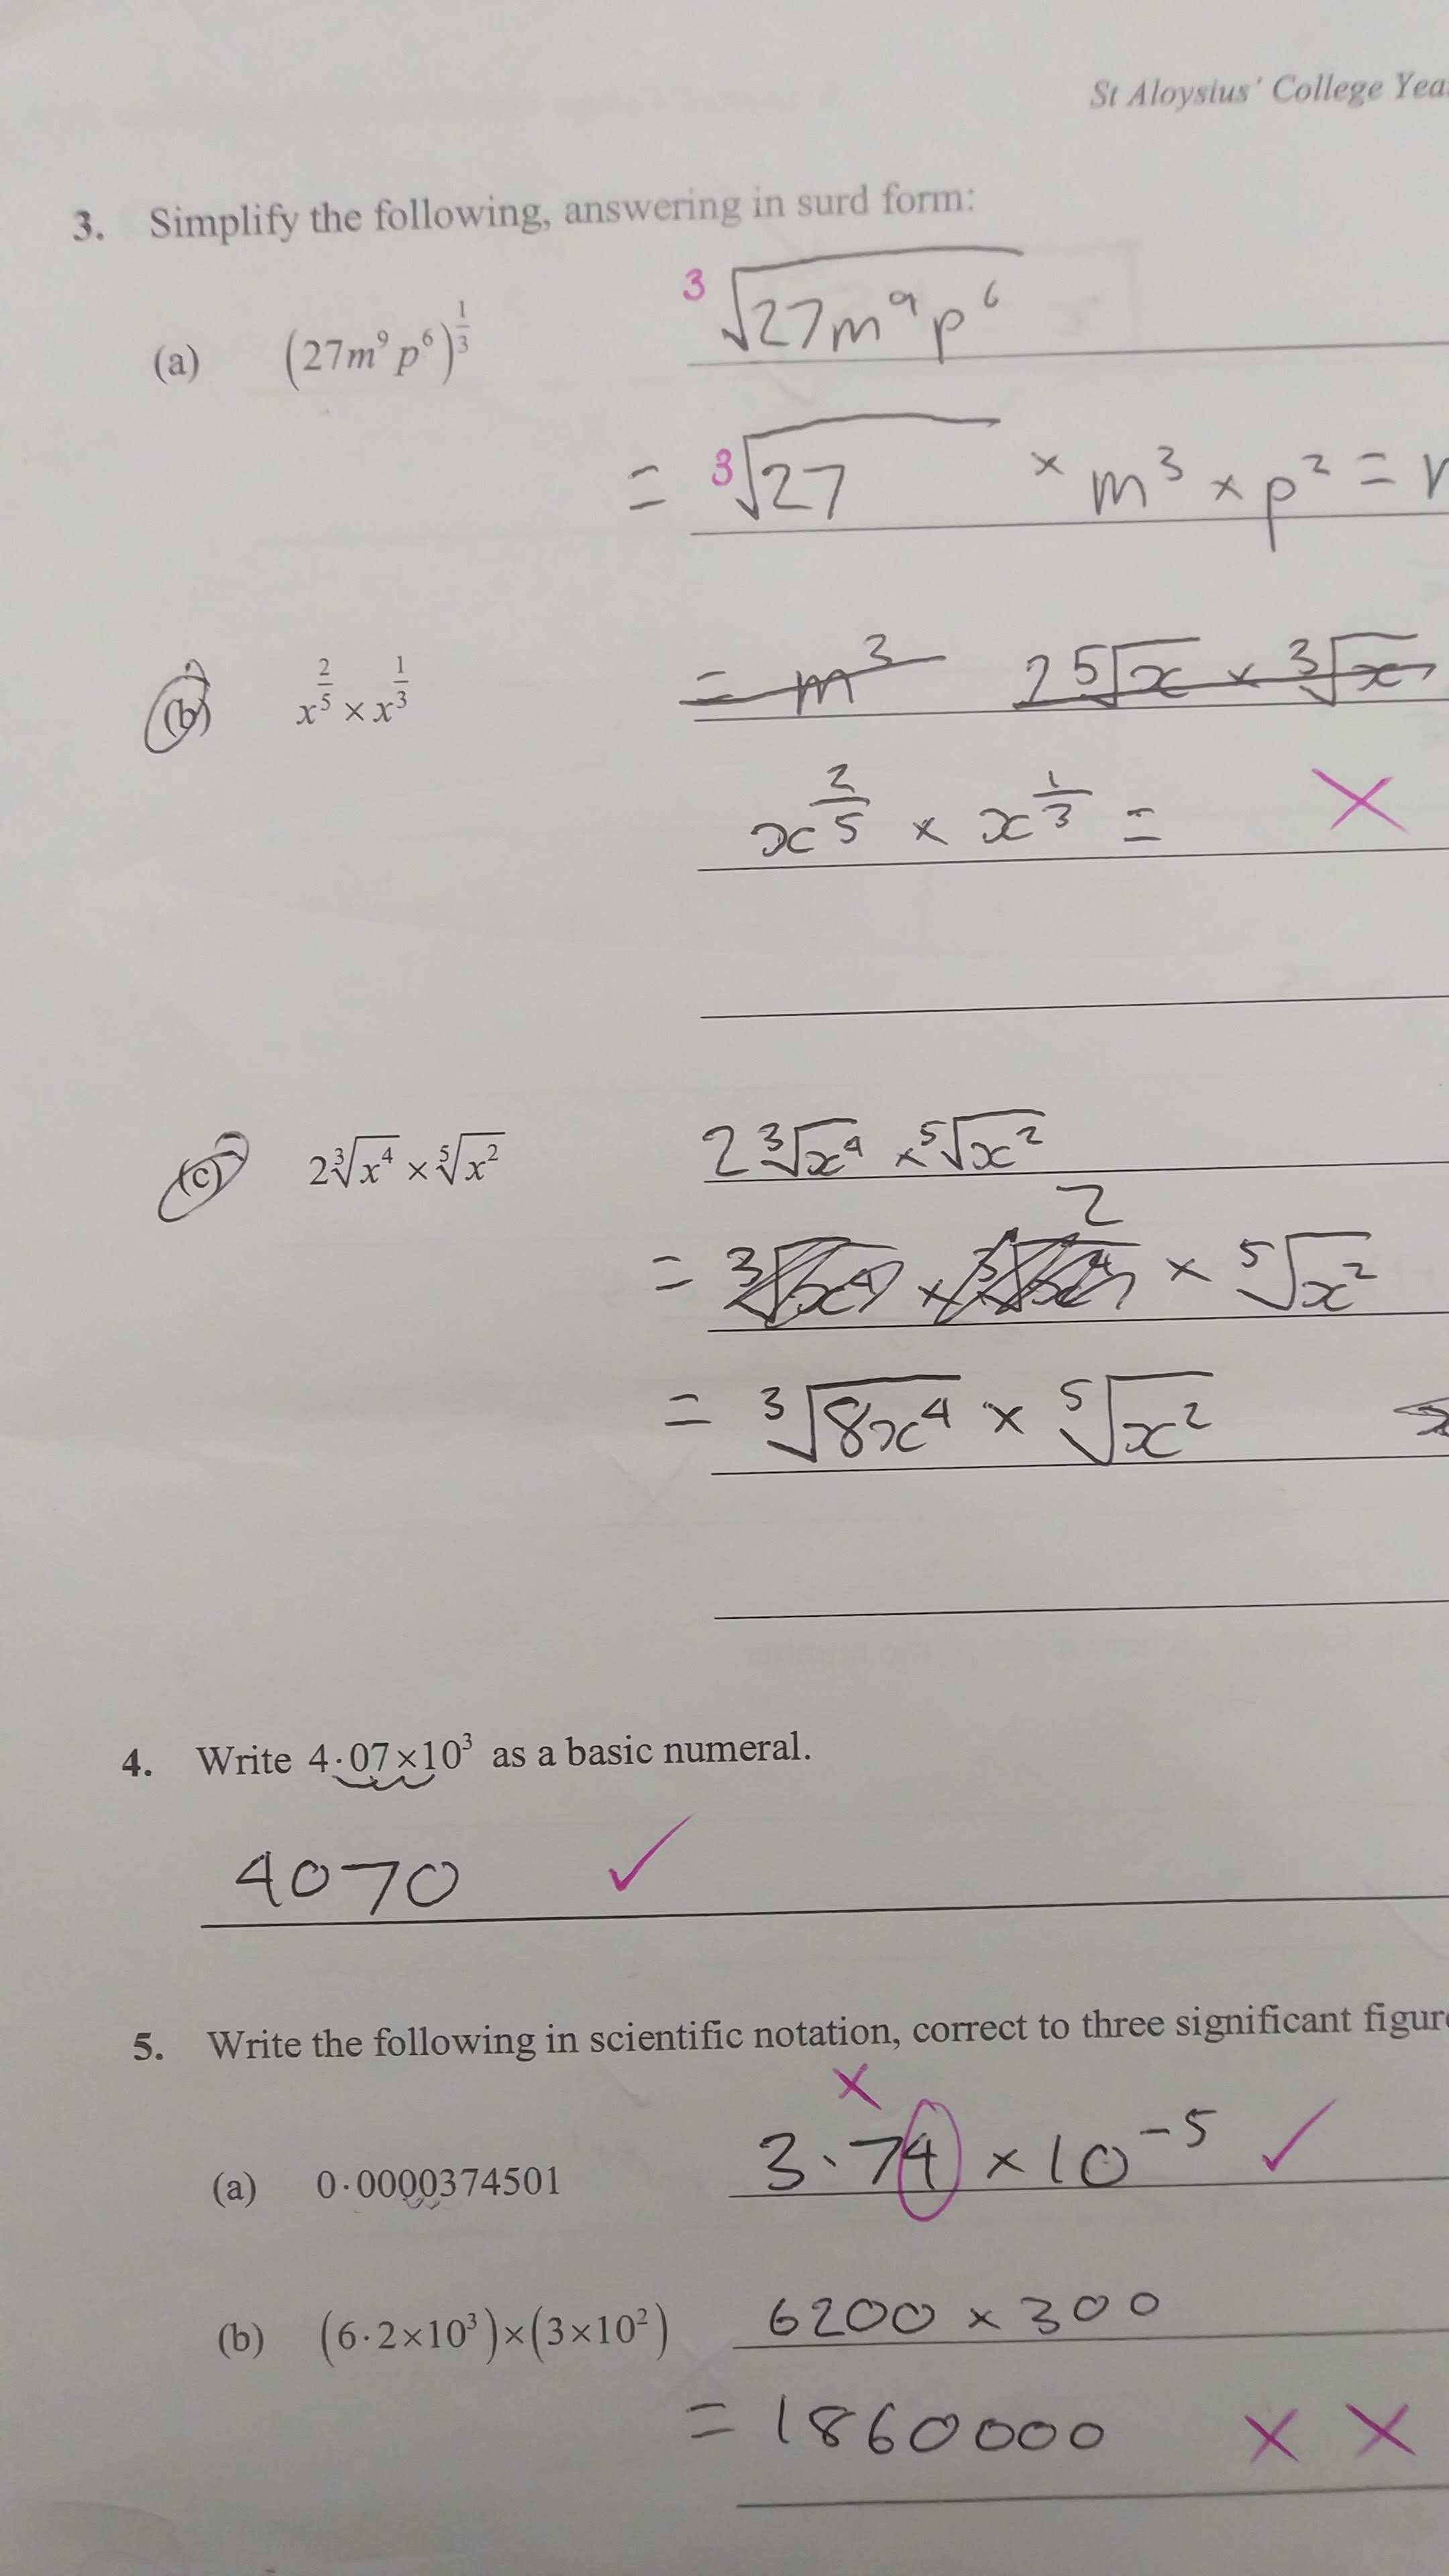 St Aloysius' College
3. Simplify the following, answering in surd form:
(a) (27m⁹p⁶)^(1/3) ³√(27m⁹p⁶)
= ³√27 × m³ × p² =
(b) x^(2/5) × x^(1/3) = m³ 2 ⁵√x × ³√x
x^(2/5) × x^(1/3) = ×
(c) 2³√x⁴ × ⁵√x² 2³√x⁴ × ⁵√x²
2
= ³√x⁴ × ³√x⁴ × ⁵√x²
= ³√8x⁴ × ⁵√x²
4. Write 4·07×10³ as a basic numeral.
4070 ✓
5. Write the following in scientific notation, correct to three significant
×
(a) 0·0000374501 3·74 × 10⁻⁵ ✓
(b) (6·2×10³)×(3×10²) 6200 × 300
= 1860000 × ×